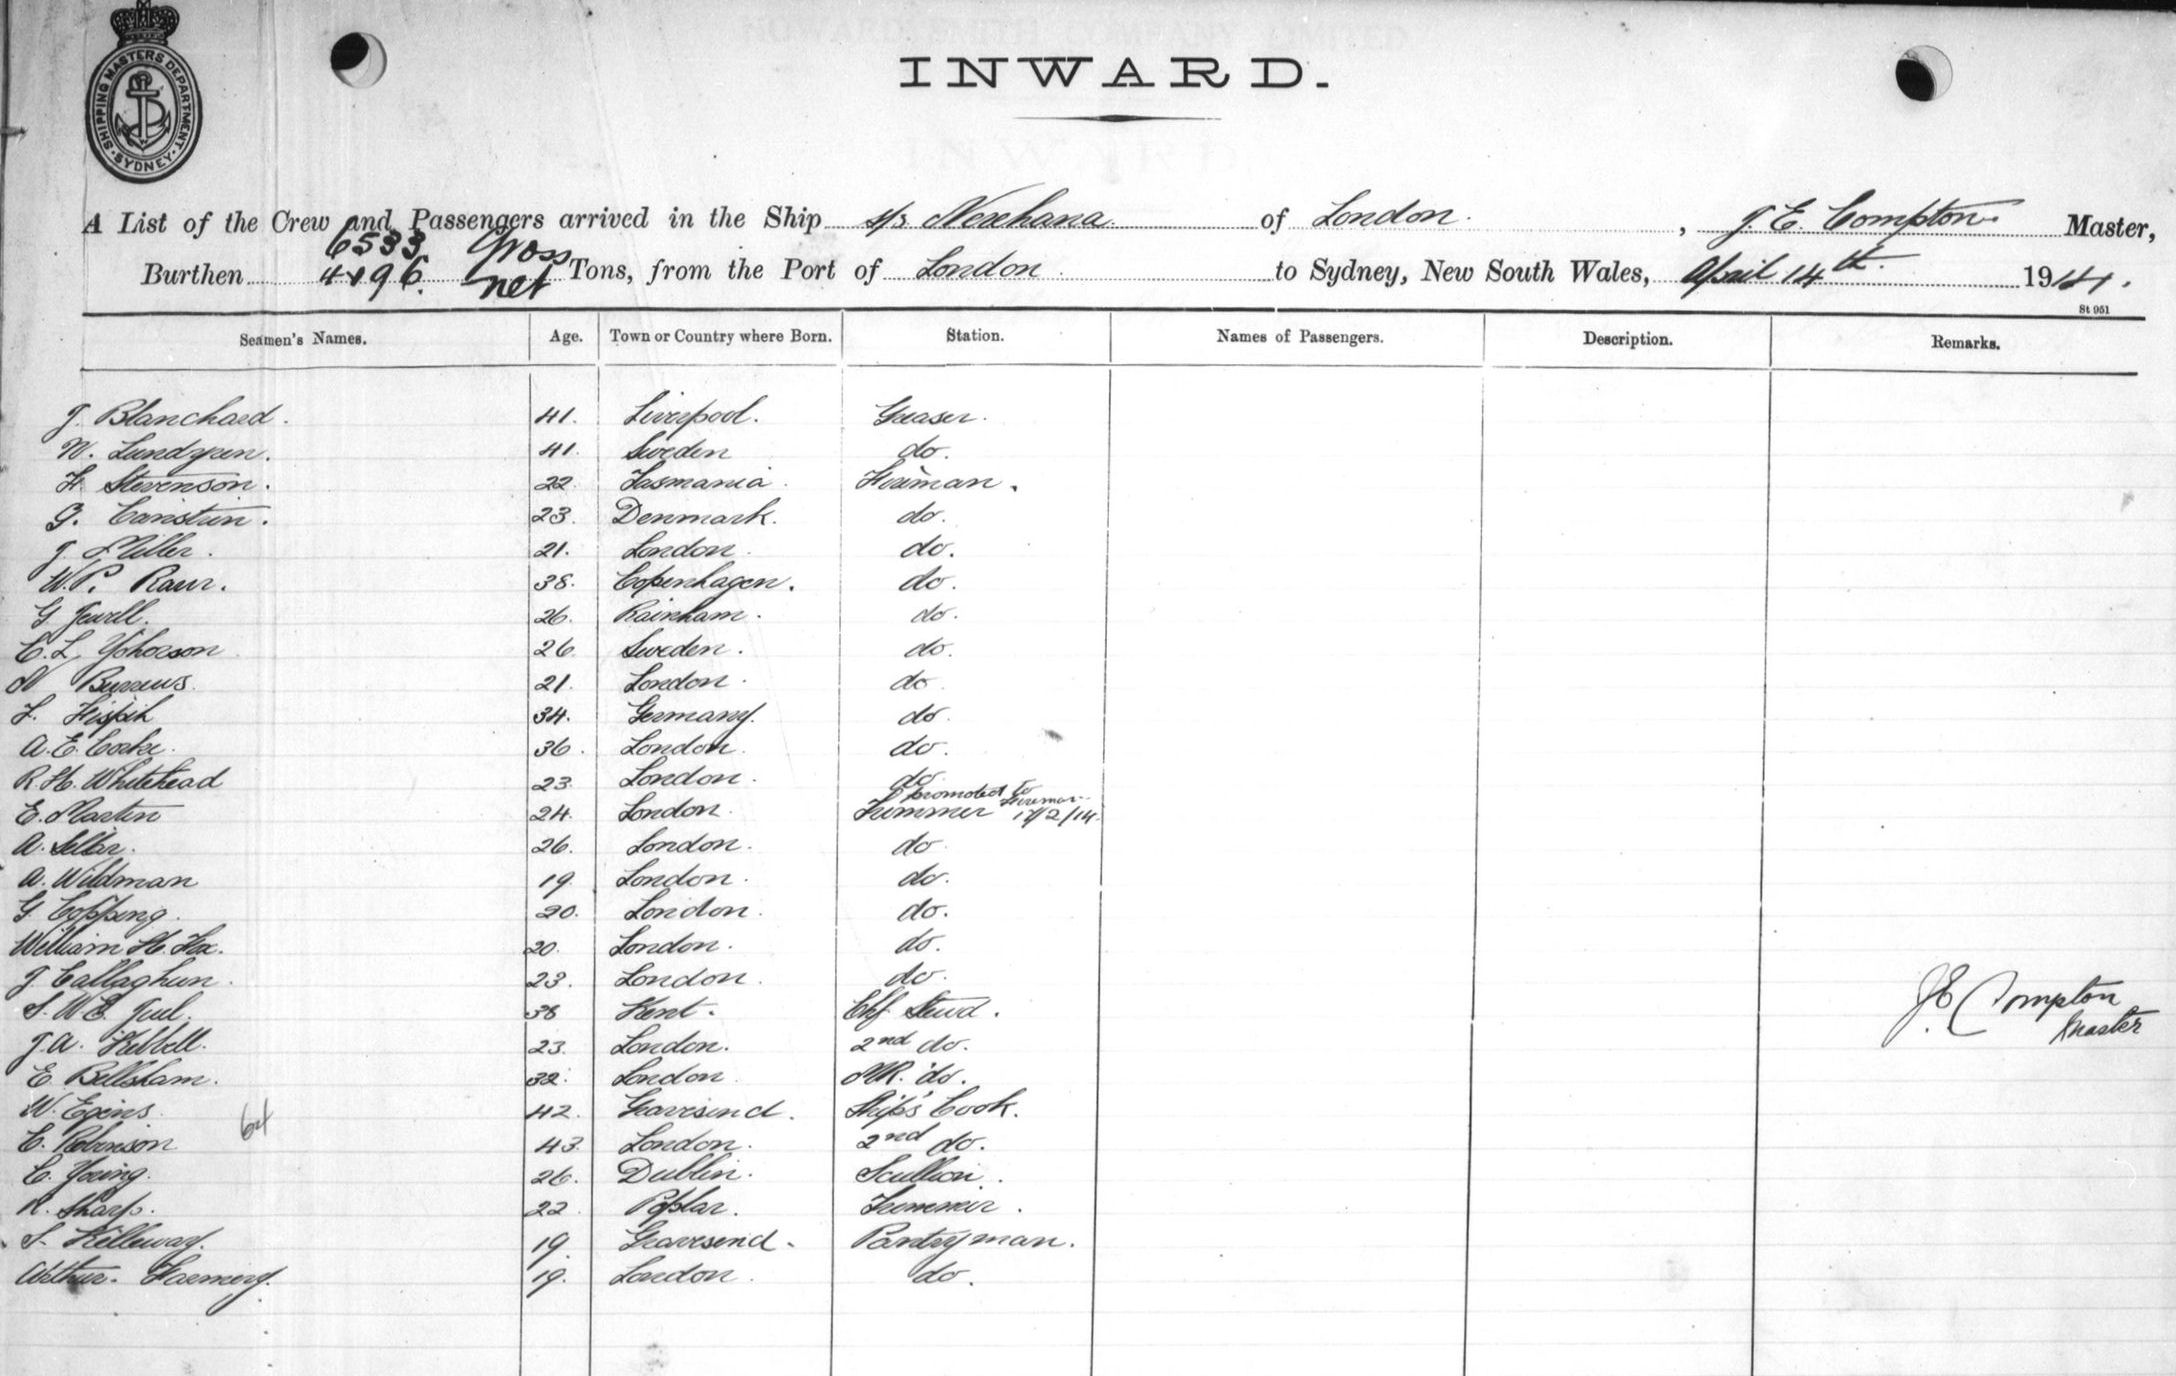 SHIPPING MASTERS DEPARTMENT
SYDNEY
INWARD.
A List of the Crew and Passengers arrived in the Ship s/s Neeehana of London , J. E. Compton Master,
6533 Gross
Burthen 4196 net Tons, from the Port of London to Sydney, New South Wales, April 14th 1914.
St 951
Seamen's Names. Age. Town or Country where Born. Station. Names of Passengers. Description. Remarks.
J. Blanchard. 41. Liverpool. Greaser.
N. Lundgren. 41. Sweden do.
F. Stevenson. 22. Tasmania. Fireman.
G. 23. Denmark. do.
J. Miller. 21. London. do.
W. P. 38. Copenhagen. do.
G. Jewell. 26. Rainham. do.
C. L. 26. Sweden. do.
21. London. do.
34. Germany. do.
A. E. Cooke. 36. London. do.
R. H. Whitehead 23. London. do.
promoted to
Fireman
E. Martin 24. London. Trimmer 17/2/14.
A. 26. London. do.
A. Wildman 19. London. do.
G. Copping. 20. London. do.
William H. Fox. 20. London. do.
J. Callaghan. 23. London. do.
S. W. E. 38 Kent. Chf. Stewd.
J. A. Kibbell. 23. London. 2nd do.
E. Bellsham. 32. London. do.
W. 42. Gravesend. Ship's Cook.
C. Robinson 43. London. 2nd do.
C. Young. 26. Dublin. Scullion.
R. Sharp. 22. Poplar. Trimmer.
S. Killeway. 19. Gravesend. Pantryman.
Arthur. 19. London. do.
64
J E Compton
Master